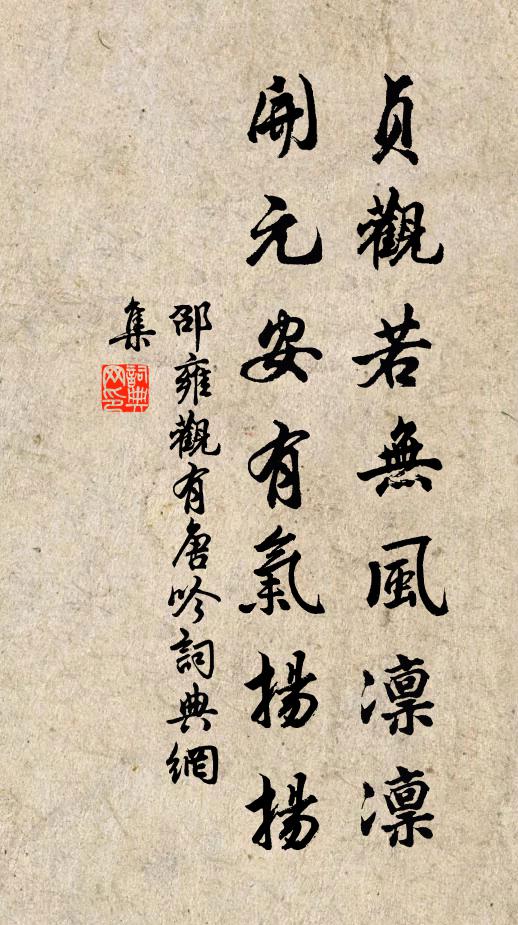 貞觀若無風凛凛
開元安有氣揚揚
邵雍觀有唐吟詞典網
集
詞典
网印